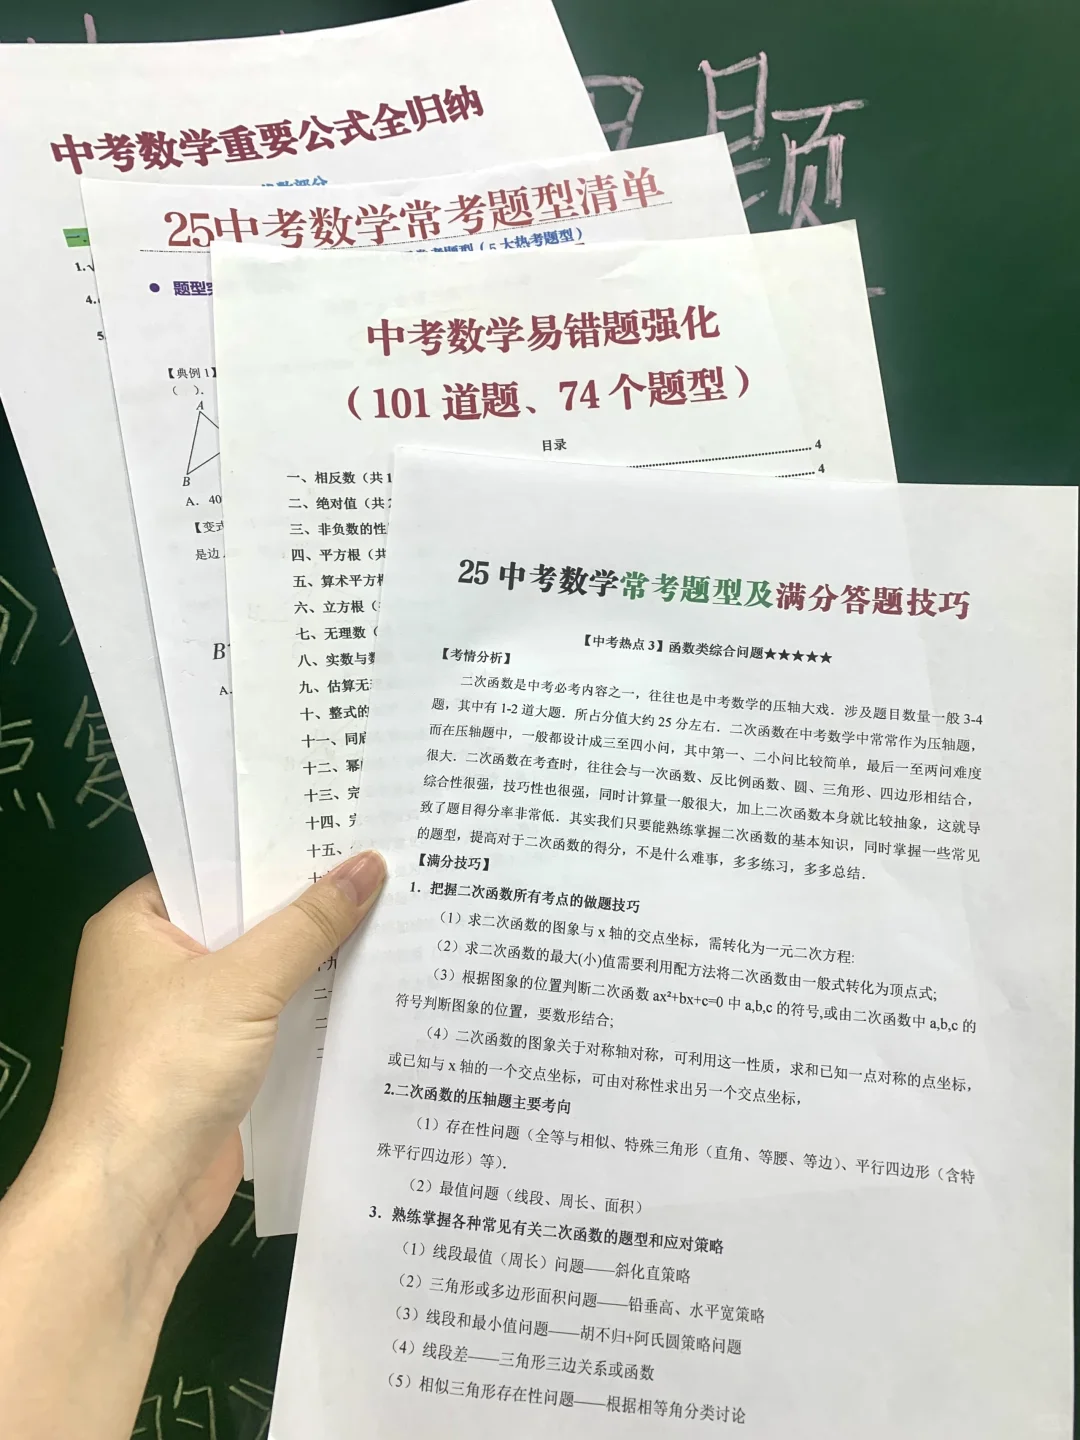 题
中考数学重要公式全归纳
一、
1.
4.
5
25中考数学常考题型清单
考题型(5大热考题型)
● 题型
【典例1】
( ).
A
B
A. 40
【变式
是边
B
A.
中考数学易错题强化
(101道题、74个题型)
目录
4
4
一、相反数(共1
二、绝对值(共2
三、非负数的性
四、平方根(共
五、算术平方根
六、立方根(
七、无理数(
八、实数与数
九、估算无理
十、整式的
十一、同底
十二、幂
十三、完
十四、完
十五、
25中考数学常考题型及满分答题技巧
【中考热点3】函数类综合问题★★★★★
【考情分析】
二次函数是中考必考内容之一，往往也是中考数学的压轴大戏．涉及题目数量一般3-4
题，其中有1-2道大题．所占分值大约25分左右．二次函数在中考数学中常常作为压轴题，
而在压轴题中，一般都设计成三至四小问，其中第一、二小问比较简单，最后一至两问难度
很大．二次函数在考查时，往往会与一次函数、反比例函数、圆、三角形、四边形相结合，
综合性很强，技巧性也很强，同时计算量一般很大，加上二次函数本身就比较抽象，这就导
致了题目得分率非常低．其实我们只要能熟练掌握二次函数的基本知识，同时掌握一些常见
的题型，提高对于二次函数的得分，不是什么难事，多多练习，多多总结．
【满分技巧】
1．把握二次函数所有考点的做题技巧
(1)求二次函数的图象与x轴的交点坐标，需转化为一元二次方程:
(2)求二次函数的最大(小)值需要利用配方法将二次函数由一般式转化为顶点式;
(3)根据图象的位置判断二次函数ax²+bx+c=0中a,b,c的符号,或由二次函数中a,b,c的
符号判断图象的位置，要数形结合;
(4)二次函数的图象关于对称轴对称，可利用这一性质，求和已知一点对称的点坐标，
或已知与x轴的一个交点坐标，可由对称性求出另一个交点坐标，
2.二次函数的压轴题主要考向
(1)存在性问题(全等与相似、特殊三角形(直角、等腰、等边)、平行四边形(含特
殊平行四边形)等).
(2)最值问题(线段、周长、面积)
3．熟练掌握各种常见有关二次函数的题型和应对策略
(1)线段最值(周长)问题——斜化直策略
(2)三角形或多边形面积问题——铅垂高、水平宽策略
(3)线段和最小值问题——胡不归+阿氏圆策略问题
(4)线段差——三角形三边关系或函数
(5)相似三角形存在性问题——根据相等角分类讨论